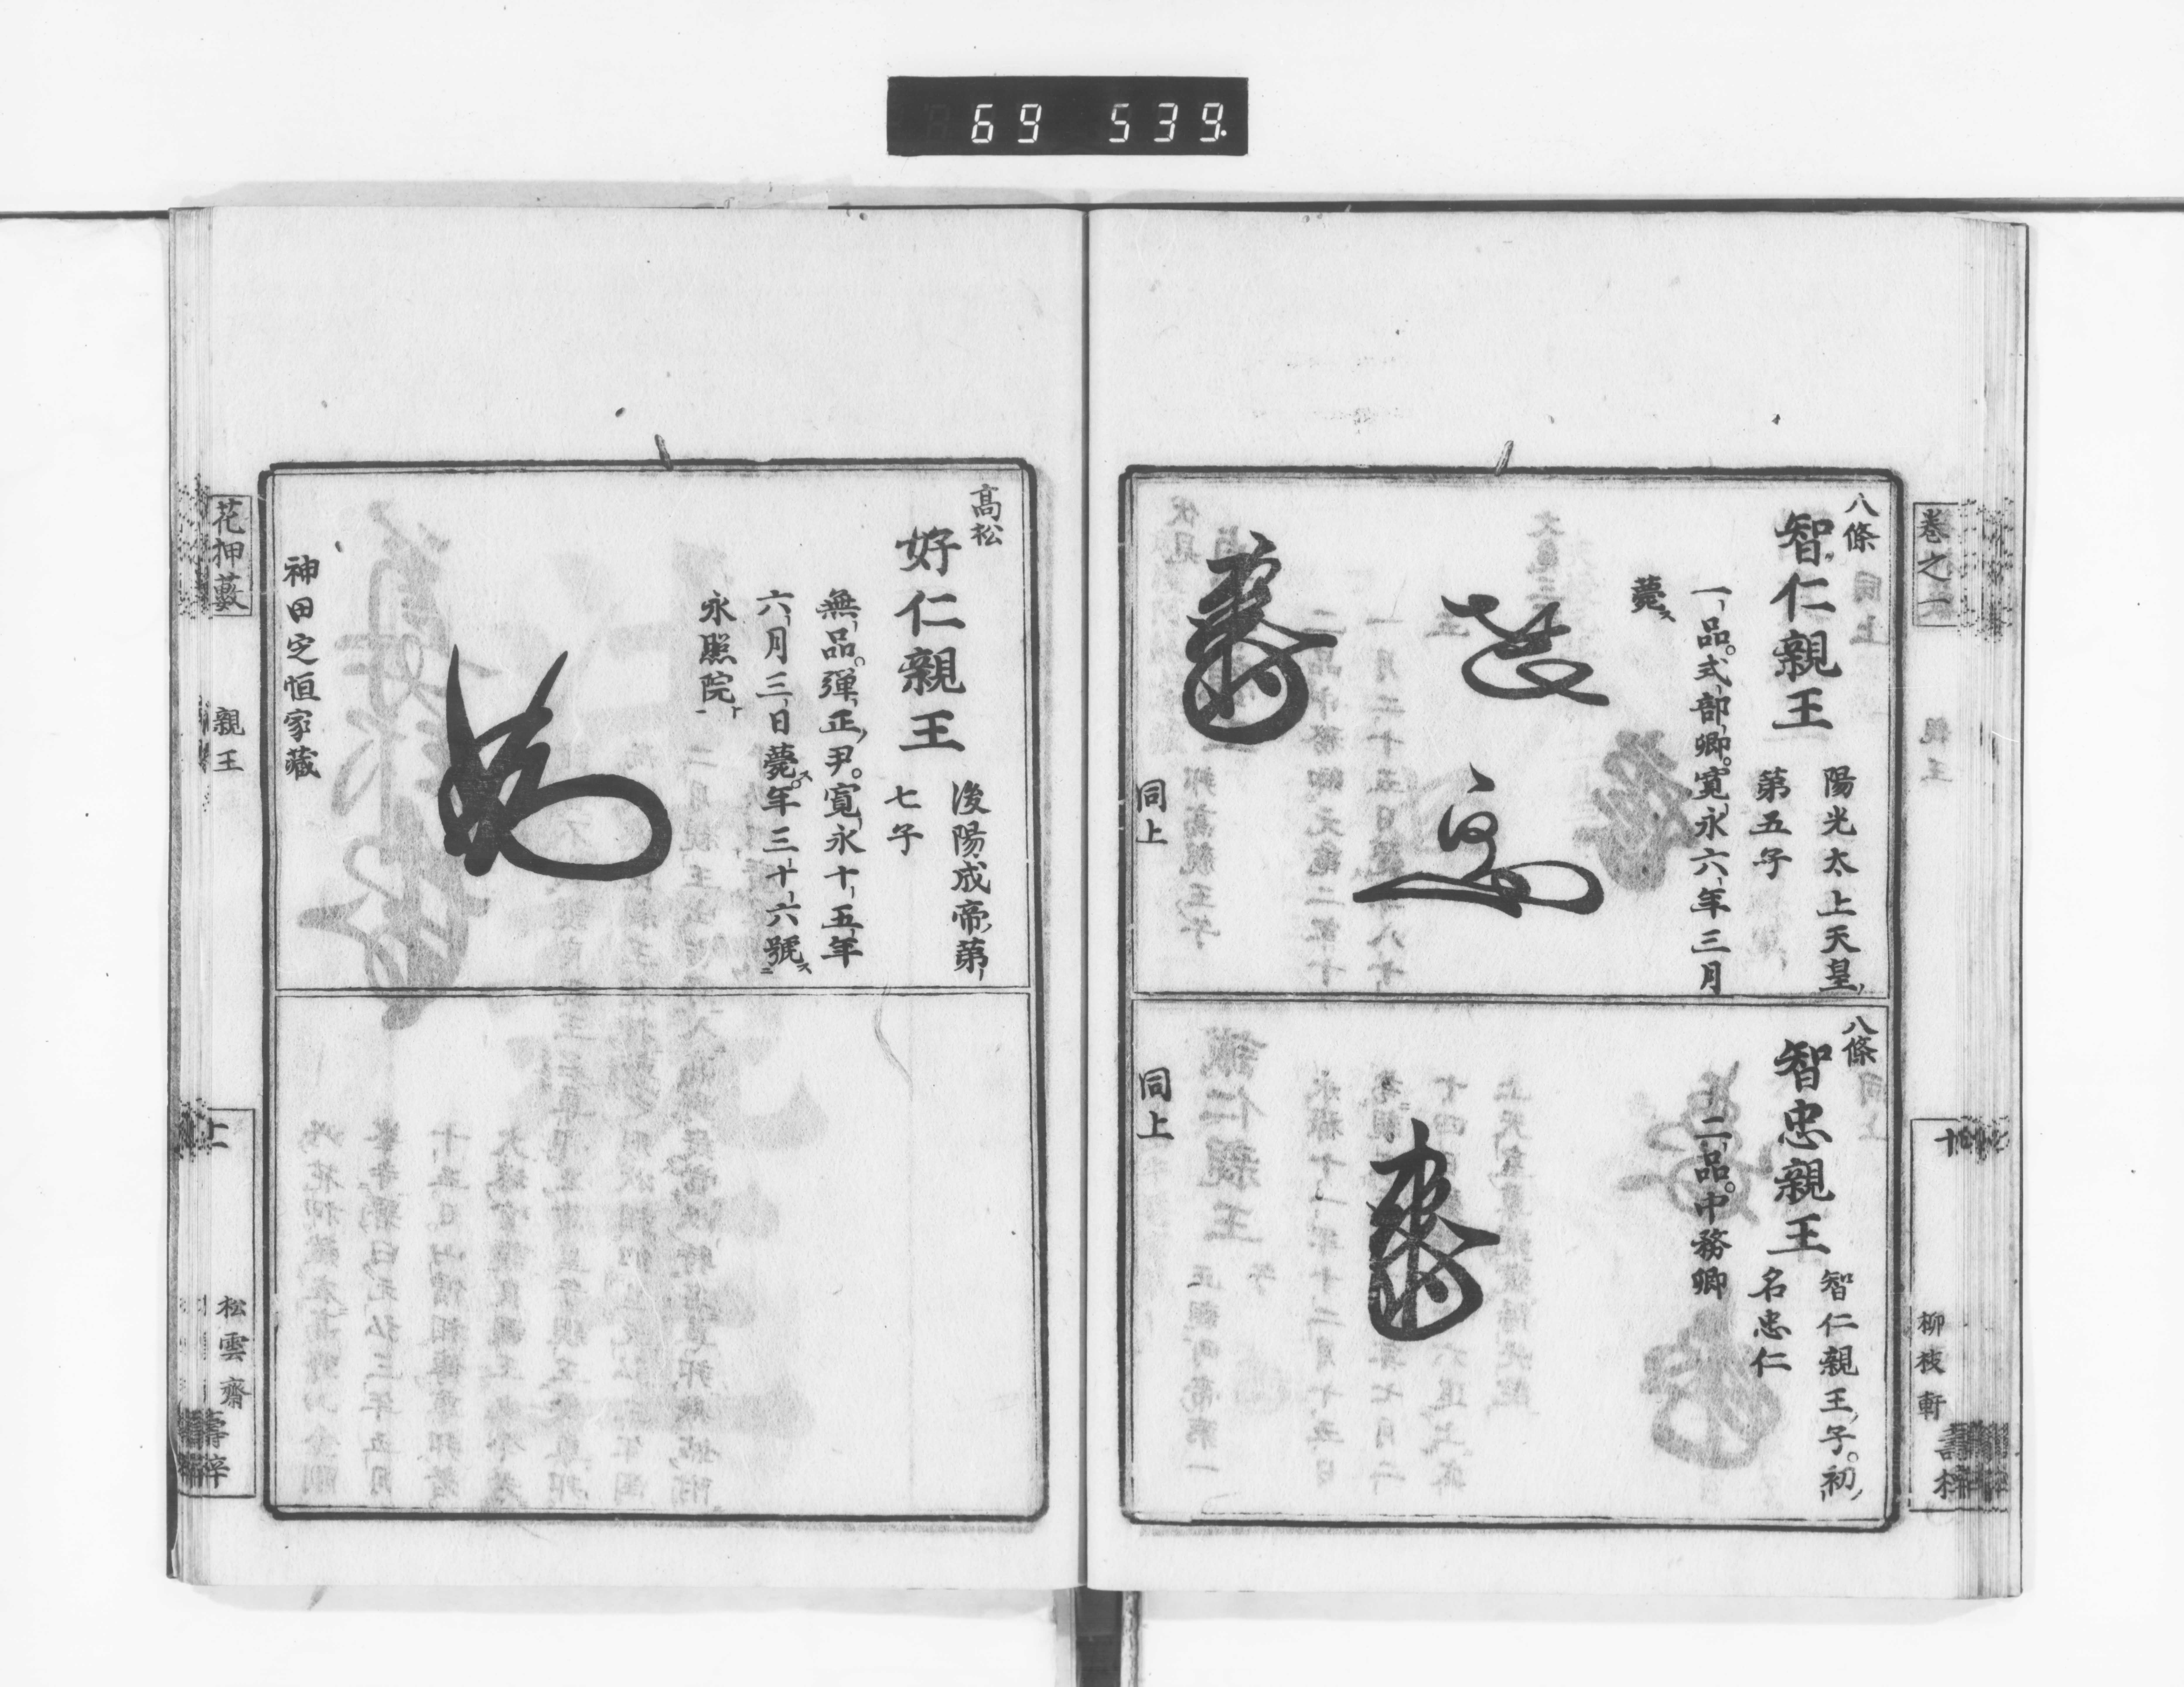 69 539.
巻之一
十
柳枝軒
八條
智仁親王
陽光太上天皇
第五子
一品。式部卿。寛永六年三月
薨ス
同上
八條
智忠親王
智仁親王子。初
名忠仁
二品。中務卿
同上
高松
好仁親王
後陽成帝第
七子
無品。弾正尹。寛永十五年
六月三日薨ス。年三十六號ス
永照院ト
神田定恒家藏
花押藪
親王
上
松雲齋
壽梓